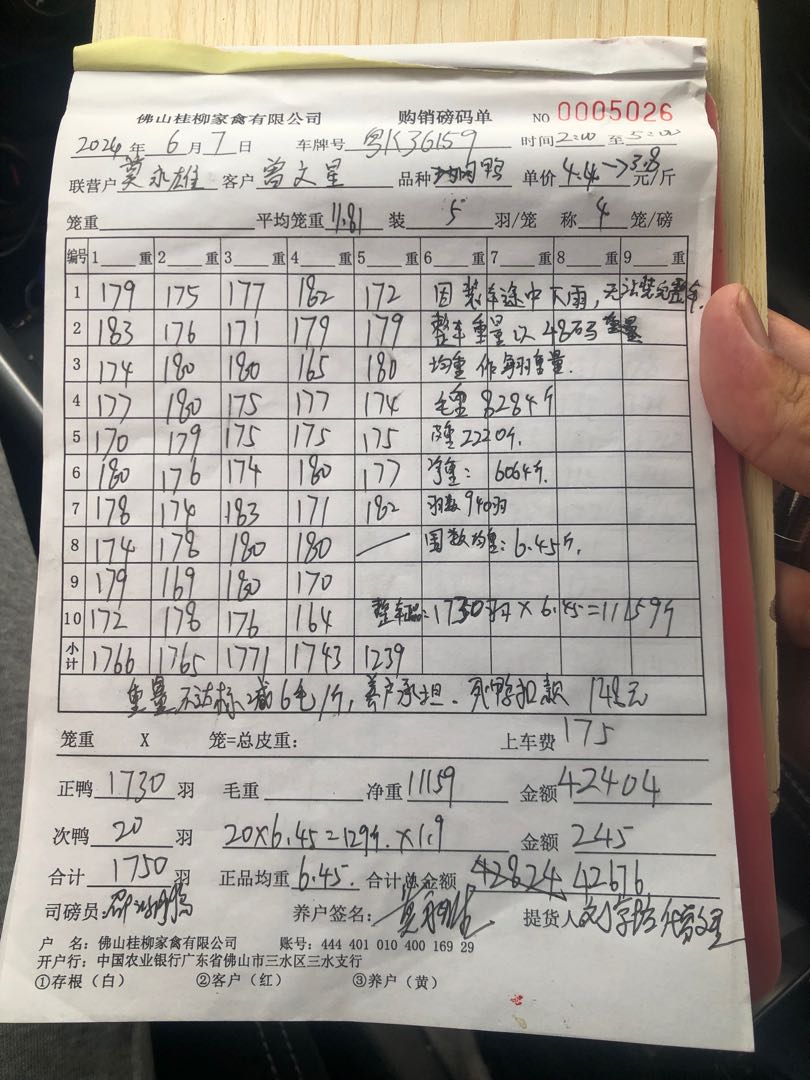 佛山桂柳家禽有限公司 购销磅码单 NO 0005026
2024年6月7日 车牌号 粤K36159 时间2:00至5:00
联营户 莫永雄 客户 曾文星 品种 鸭 单价 4.4→3.8 元/斤
笼重 平均笼重 11.81 装 5 羽/笼 称 4 笼/磅
编号 1 重 2 重 3 重 4 重 5 重 6 重 7 重 8 重 9 重
1 179 175 177 182 172 因装车途中下雨,无法装完整车.
2 183 176 171 179 179 整车重量以48码重量
3 174 180 180 165 180 均重作每羽重量.
4 177 180 175 177 174 毛重8284斤
5 170 179 175 175 175 皮重2220斤.
6 180 176 174 180 177 净重: 6064斤.
7 178 174 183 171 182 羽数940羽
8 174 178 180 180 / 均重:6.45斤.
9 179 169 180 170
10 172 178 176 164 整车正品:1730羽×6.45=11159斤
小计 1766 1765 1771 1743 1239
重量不达标减6毛/斤,养户承担.死鸭扣款 148元
笼重 X 笼=总皮重: 上车费 175
正鸭 1730 羽 毛重 净重 11159 金额 42404
次鸭 20 羽 20×6.45=129斤.×1.9 金额 245
合计 1750 羽 正品均重 6.45. 合计总金额 42824 42676
司磅员: 养户签名: 提货人
户 名:佛山桂柳家禽有限公司 账号:444 401 010 400 169 29
开户行:中国农业银行广东省佛山市三水区三水支行
①存根(白) ②客户(红) ③养户(黄)